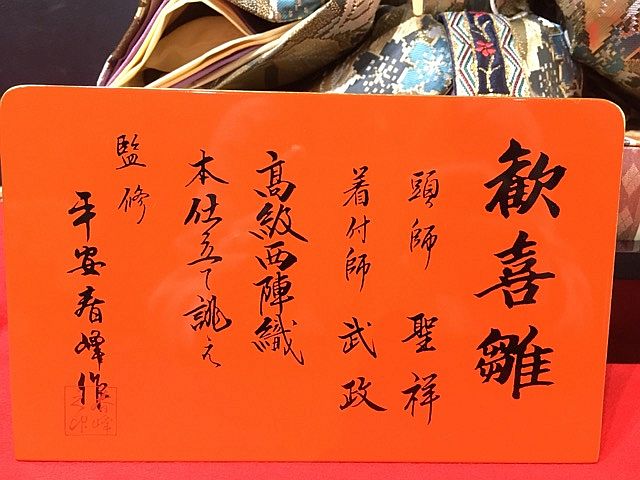 歓喜雛
頭師 聖祥
着付師 武政
高級西陣織
本仕立て誂え
監修
平安春峰作